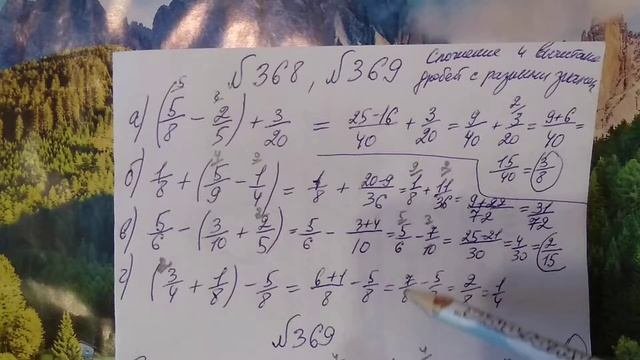 №368, №369
Сложение и вычитание
дробей с разными знаме
а) (5/8 - 2/5) + 3/20 = 25-16/40 + 3/20 = 9/40 + 3/20 = 9+6/40 =
15/40 = 3/8
б) 1/8 + (5/9 - 1/4) = 1/8 + 20-9/36 = 1/8 + 11/36 = 9+22/72 = 31/72
в) 5/6 - (3/10 + 2/5) = 5/6 - 3+4/10 = 5/6 - 7/10 = 25-21/30 = 4/30 = 2/15
г) (3/4 + 1/8) - 5/8 = 6+1/8 - 5/8 = 7/8 - 5/8 = 2/8 = 1/4
№369